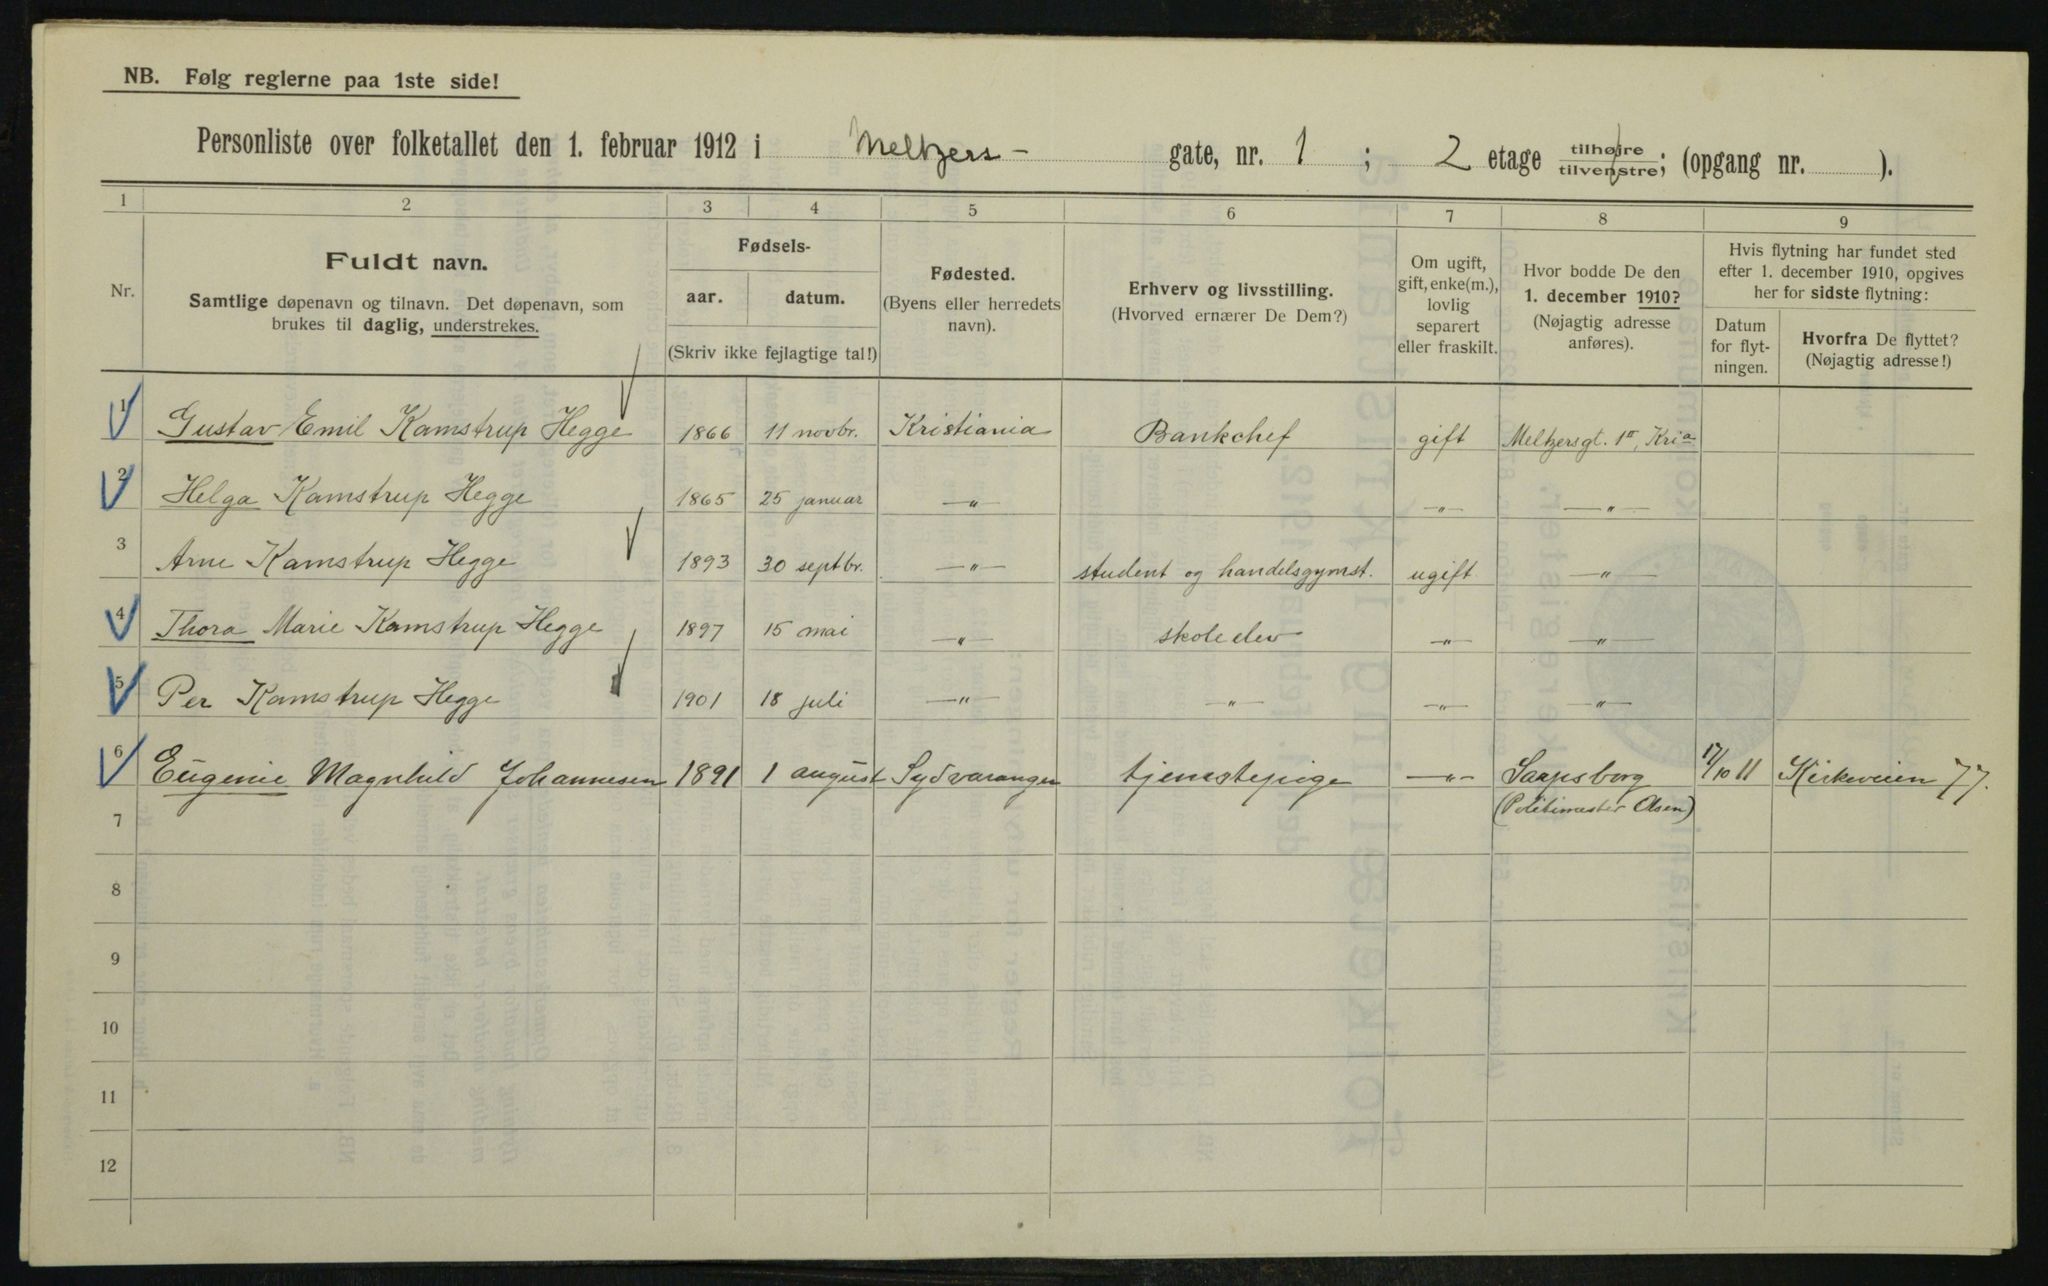 NB. Følg reglerne paa 1ste side!
Personliste over folketallet den 1. februar 1912 i Meltzers- gate, nr. 1 ; 2 etage tilhøjre tilvenstre; (opgang nr. ).
1 2 3 4 5 6 7 8 9
Nr.
Fuldt navn.
Samtlige døpenavn og tilnavn. Det døpenavn, som
brukes til daglig, understrekes.
Fødsels-
aar. datum.
(Skriv ikke fejlagtige tal!)
Fødested.
(Byens eller herredets
navn).
Erhverv og livsstilling.
(Hvorved ernærer De Dem?)
Om ugift,
gift, enke(m.),
lovlig
separert
eller fraskilt.
Hvor bodde De den
1. december 1910?
(Nøjagtig adresse
anføres).
Hvis flytning har fundet sted
efter 1. december 1910, opgives
her for sidste flytning:
Datum
for flyt-
ningen.
Hvorfra De flyttet?
(Nøjagtig adresse!)
1 Gustav Emil Kamstrup Hegge 1866 11 novbr. Kristiania Bankchef gift Meltzersgt. 1II, Kria
2 Helga Kamstrup Hegge 1865 25 januar —"— —"— —"—
3 Arne Kamstrup Hegge 1893 30 septbr. —"— student og handelsgymst. ugift —"—
4 Thora Marie Kamstrup Hegge 1897 15 mai —"— skoleelev —"— —"—
5 Per Kamstrup Hegge 1901 18 juli —"— —"— —"— —"—
6 Eugenie Magnhild Johannesen 1891 1 august Sydvaranger tjenestepige —"— Sarpsborg 17/10 11 Kirkeveien 77.
(Politimester Olsen)
7
8
9
10
11
12